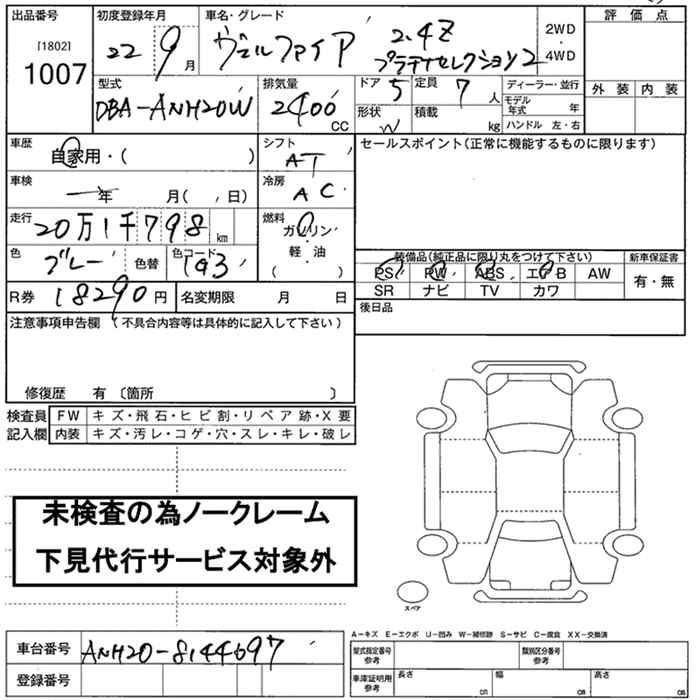 出品番号 初度登録年月 車名・グレード 評価点
[1802]
1007 22 9月 ヴェルファイア 2.4Z プラチナセレクション2 2WD・4WD
外装 内装
型式 排気量 ドア 定員 ディーラー・並行
DBA-ANH20W 2400CC 5 7人 モデル年式 年
形状 W 積載 kg ハンドル 左・右
車歴 シフト セールスポイント(正常に機能するものに限ります)
自家用・( ) AT
車検 冷房
一年 月( , 日) AC
走行 燃料
20万1千798km ガソリン
色 色替 色コード 軽・油
グレー 1G3 ( )
装備品(純正品に限り丸をつけて下さい) 新車保証書
PS PW ABS エアB AW 有・無
SR ナビ TV カワ
R券 18290円 名変期限 月 日 後日品
注意事項申告欄 (不具合内容等は具体的に記入して下さい)
修復歴 有 〔箇所 〕
検査員 FW キズ・飛石・ヒビ割・リペア跡・X要
記入欄 内装 キズ・汚レ・コゲ・穴・スレ・キレ・破レ
未検査の為ノークレーム
下見代行サービス対象外
スペア
A-キズ E-エクボ U-凹み W-補修跡 S-サビ C-腐食 XX-交換済
車台番号 ANH20-8144697 型式指定番号 参考 類別区分番号 参考
登録番号 車庫証明用 参考 長さ cm 幅 cm 高さ cm